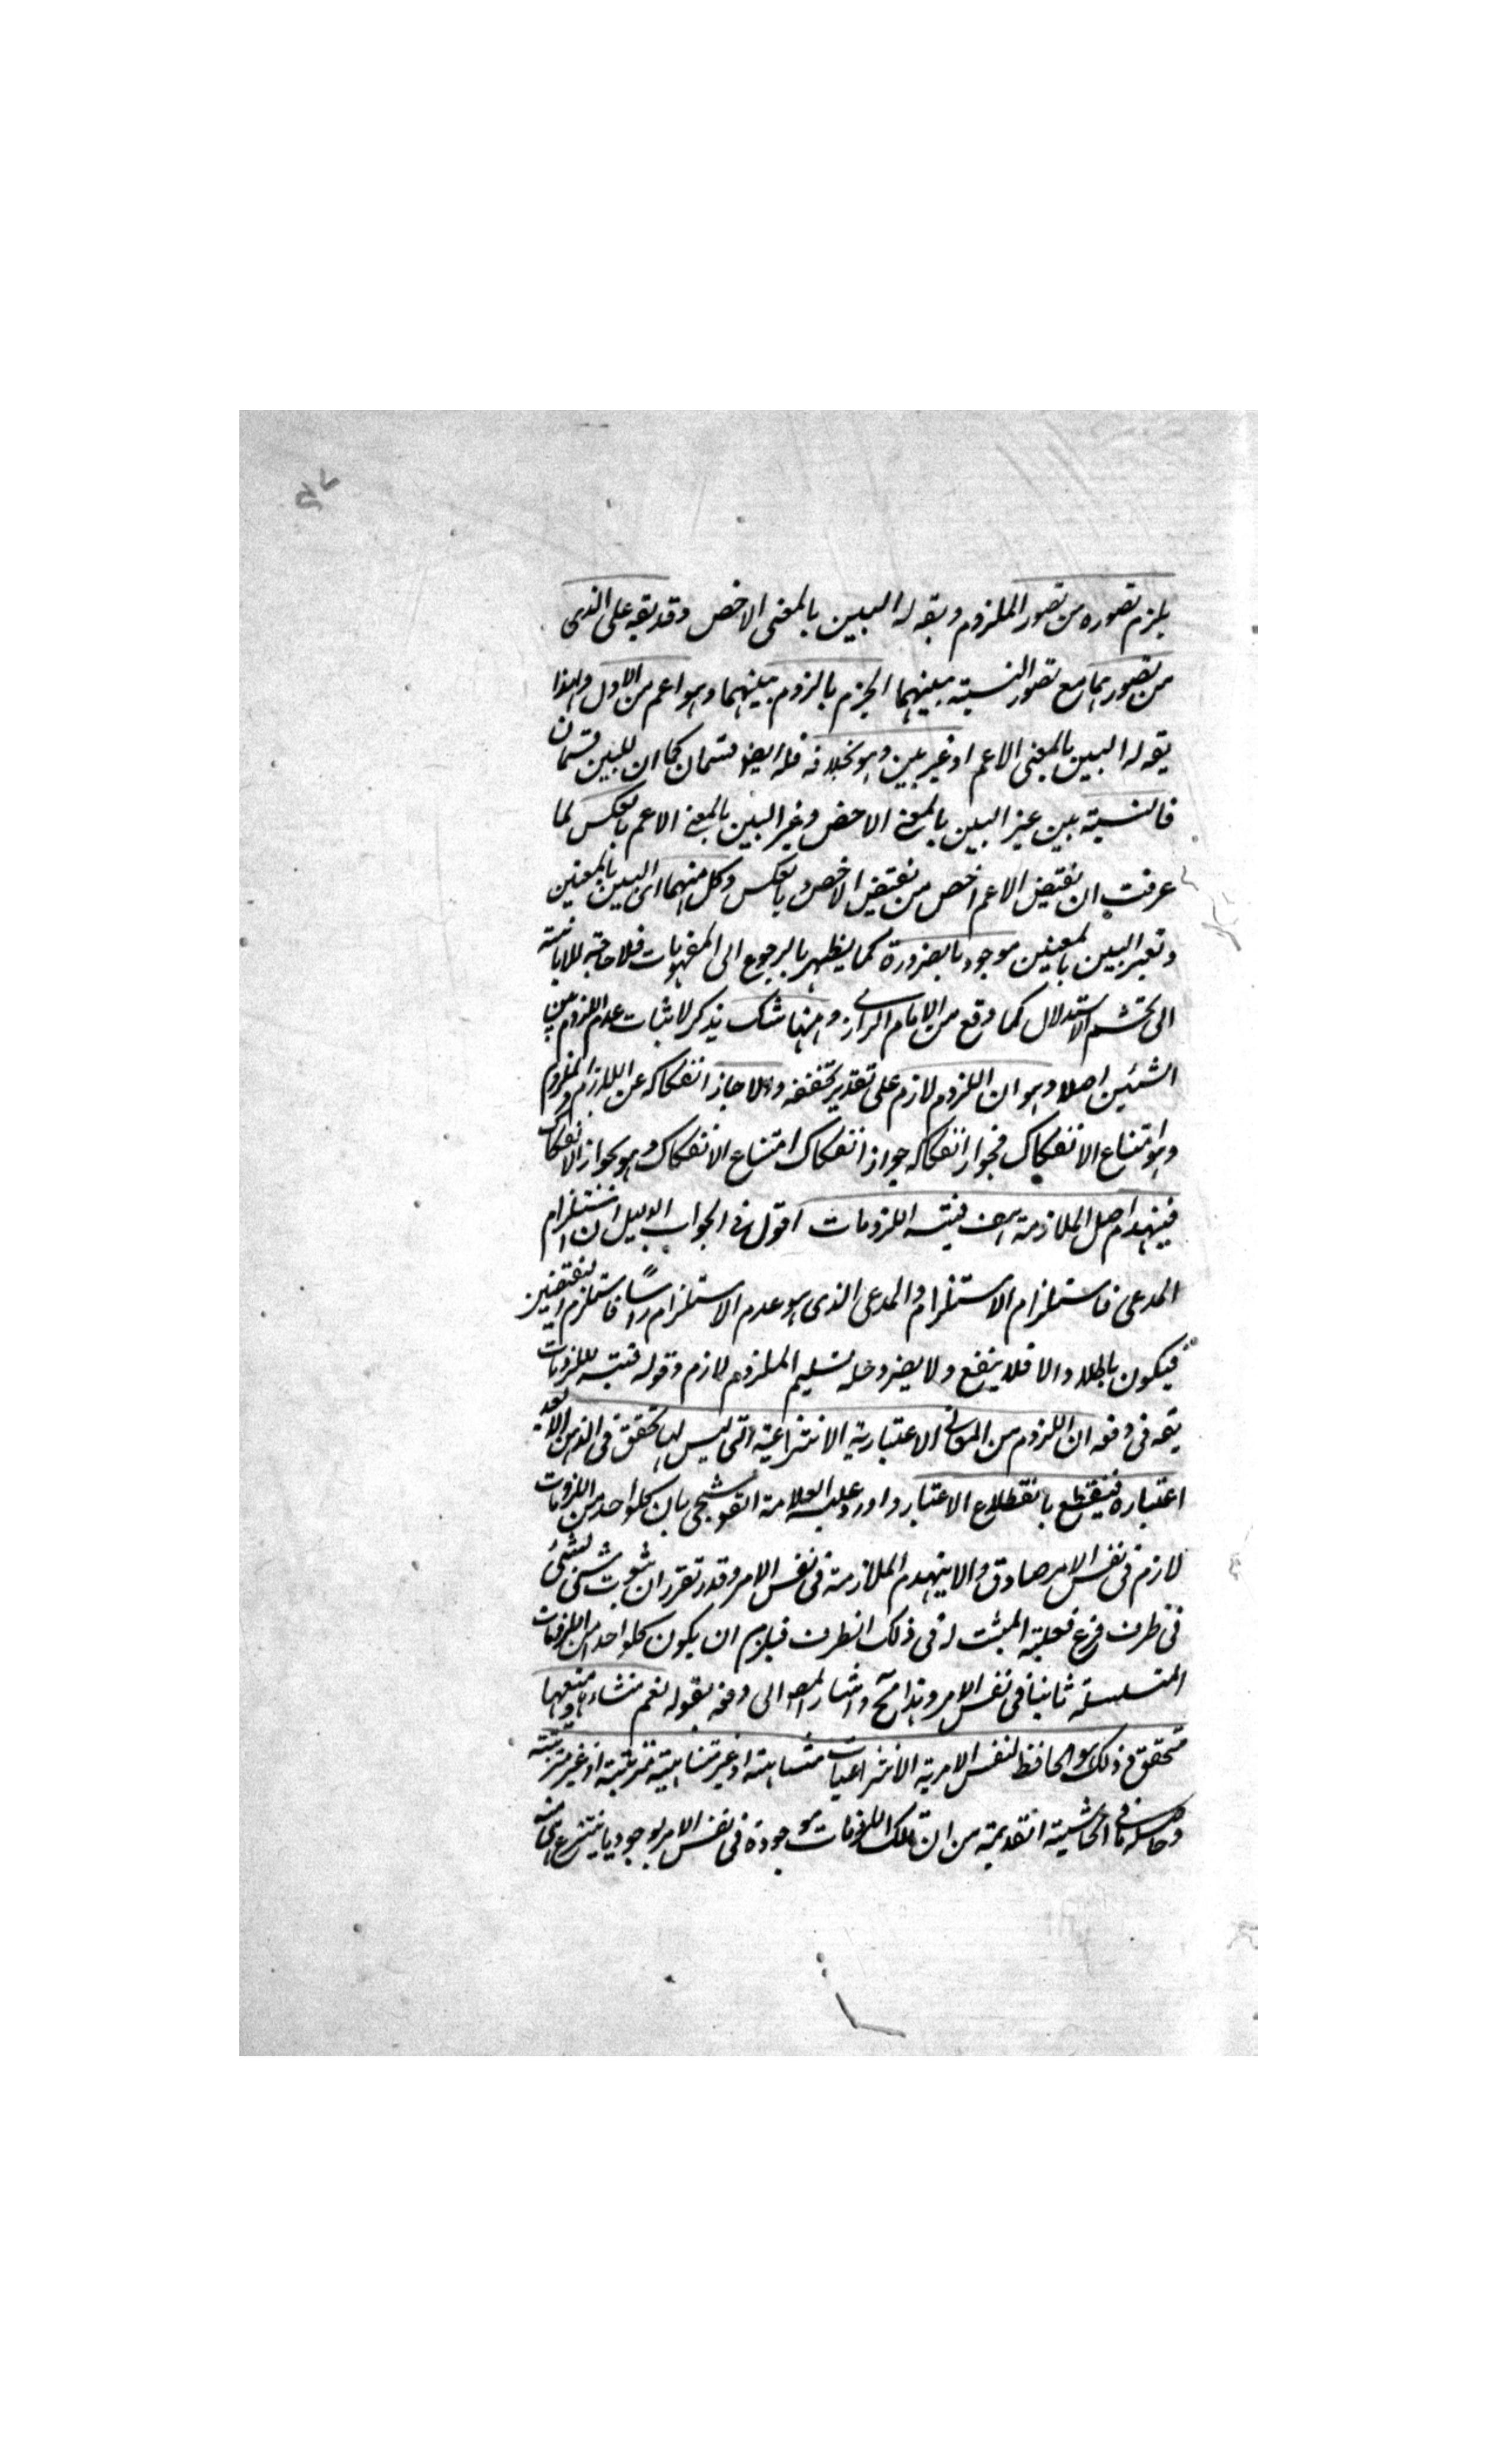 يلزم تصوره من تصور الملزوم ويقه له البين بالمعنى الاخص وقد يقه على الذى
من تصورهما مع تصور النسبته بينهما الجزم بالزوم بينهما وهو اعم من الاول ولهذا
يقه له البين بالمعنى الاعم او غير بين وهو بخلافه فله ايضو قسمان كما ان للبين قسمان
فالنسبته بين غير البين بالمعنى الاخص وغير البين بالمعنى الاعم بالعكس لما
عرفت ان نقيض الاعم اخص من نقيض الاخص وبالعكس وكل منهما اى البين بالمعنين
وغير البين بالمعنين موجود بالضرورة كما يظهر بالرجوع الى المفهومات فلا حاجة
الى تجشم الاستدلال كما وقع من الامام الرازى ومنها شك يذكر لاثبات عدم اللزوم بين
الشئين اصلا وهو ان اللزوم لازم على تقدير تحققه والا جاز انفكاكه عن اللازم والملزوم
وهو امتناع الانفكاك فجواز انفكاكه جواز انفكاك امتناع الانفكاك وهو بجواز الانفكاك
فينهدم اصل الملازمة هف فيتـ اللزومات اقول فى الجواب الدليل ان استلزام
المدعى فاستلزام الاستلزام والمدعى الذى هو عدم الاستلزام راسًا فاستلزم النقيضين
فيكون باطلا والا فلا ينفع ولا يضر وحله تسليم الملزوم لازم وقوله فيتـ اللزومات
يقه فى دفعه ان اللزوم من المعانى الاعتبارية الانتزاعية التى ليس لها تحقق فى الذهن الا بعد
اعتباره فينقطع بانقطاع الاعتبار واورد عليه العلامة القوشجى بان كلواحد من اللزومات
لازم فى نفس الامر صادق والا ينهدم الملازمة فى نفس الامر وقد تقرر ان ثبوت شئ لشئ
فى ظرف فرع فعلية المثبت له فى ذلك الظرف فيلزم ان يكون كلواحد من اللزومات
المتسلسلة ثابتا فى نفس الامر وهذا مح واشار المصـ الى دفعه بقوله نعم منشاءها ومنبعها
متحقق فى ذلك هو الحافظ لنفس الامرية الانتزاعيات متناهية او غير متناهية مترتبة او غير مترتبة
وحاصله ما فى الحاشية القديمة من ان تلك اللزومات موجودة فى نفس الامر بوجود ما ينتزع هى منه